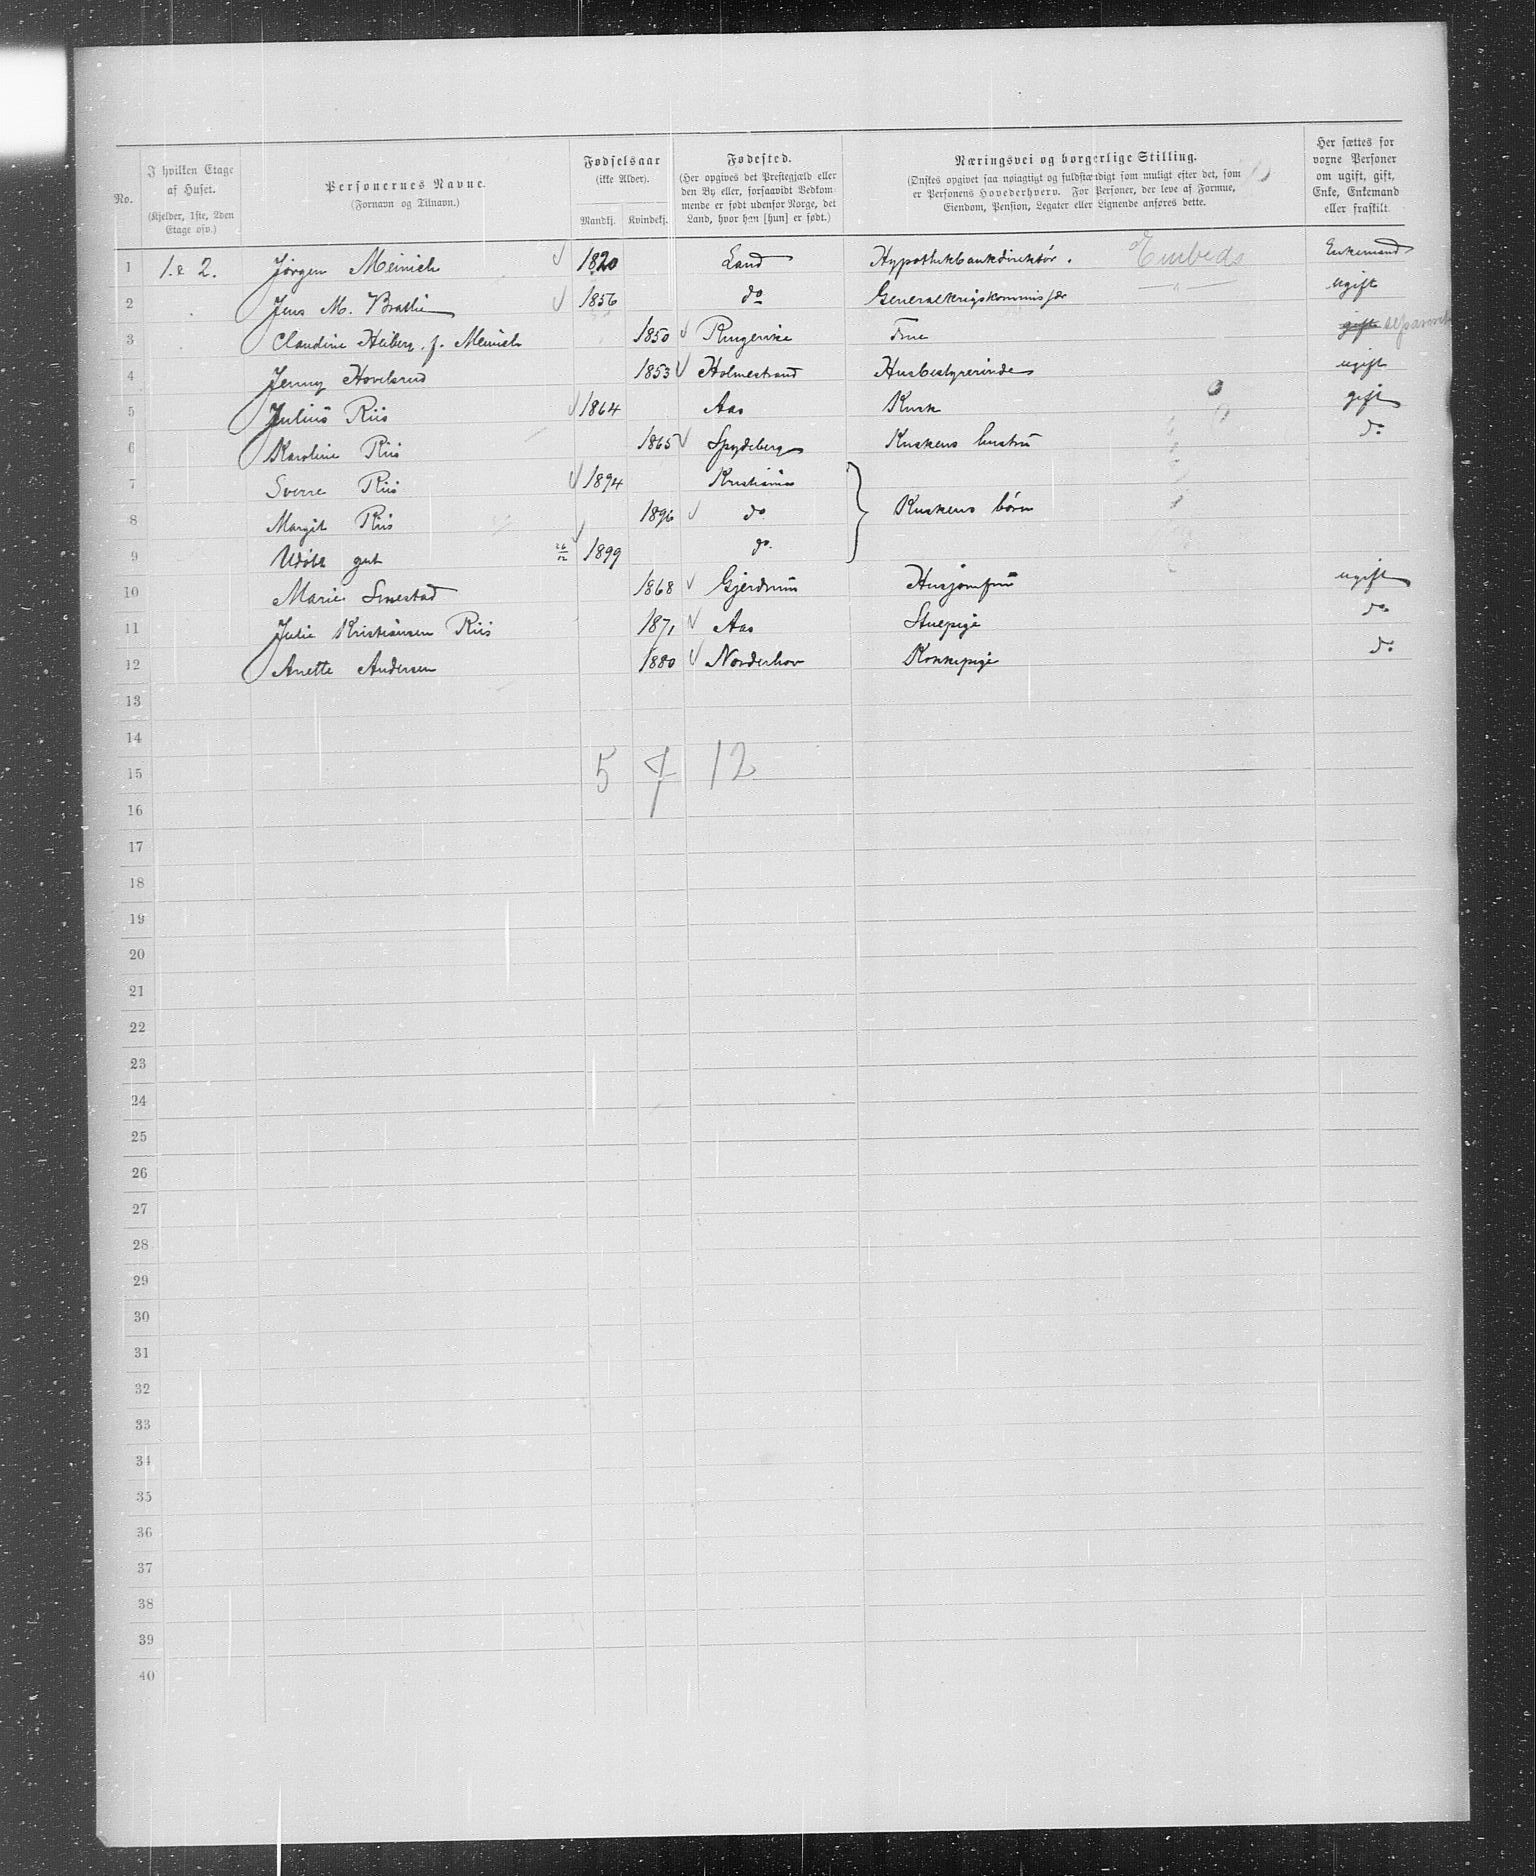 No.
I hvilken Etage af Huset.
(Kjelder, 1ste, 2den Etage osv.)
Personernes Navne.
(Fornavn og Tilnavn.)
Fødselsaar
(ikke Alder).
Mandkj. Kvindekj.
Fødested.
(Her opgives det Prestegjæld eller
den By eller, forsaavidt Vedkom-
mende er født udenfor Norge, det
Land, hvor han [hun] er født.)
Næringsvei og borgerlige Stilling.
(Ønskes opgivet saa nøiagtigt og fuldstændigt som muligt efter det, som
er Personens Hovederhverv. For Personer, der leve af Formue,
Eiendom, Pension, Legater eller Lignende anføres dette.
Her sættes for
voxne Personer
om ugift, gift,
Enke, Enkemand
eller fraskilt.
1 1 & 2. Jørgen Meinich 1820 Land Hypothekbankdirektør. Embeds Enkemand
2 Jens M. Bratlie 1856 do Generalkrigskommissær " ugift
3 Claudine Heiberg f. Meinich 1850 Ringerike Frue gift separeret
4 Jenny Hovelsrud 1853 Holmestrand Husbestyrerinde ugift
5 Julius Riis 1864 Aas Kusk gift
6 Karoline Riis 1865 Spydeberg Kuskens hustru do
7 Sverre Riis 1894 Kristiania
8 Margit Riis 1896 do Kuskens børn
9 Udøbt gut 26/12 1899 do.
10 Marie Smestad 1868 Gjerdrum Husjomfru ugift
11 Julie Kristiansen Riis 1871 Aas Stuepige do
12 Anette Andersen 1880 Norderhov Kokkepige do
13
14
15 5 7 12
16
17
18
19
20
21
22
23
24
25
26
27
28
29
30
31
32
33
34
35
36
37
38
39
40